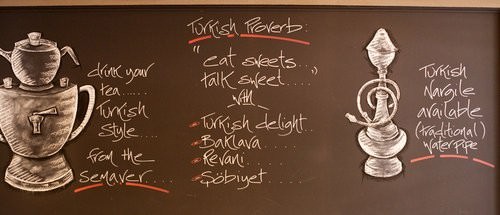 drink your
tea......
Turkish
Style....
from the
Semaver....
Turkish Proverb:
"eat sweets...
talk sweet....,,
with
Turkish delight..
Baklava......
Revani.....
Şöbiyet.....
Turkish
Nargile
available
(traditional)
waterpipe